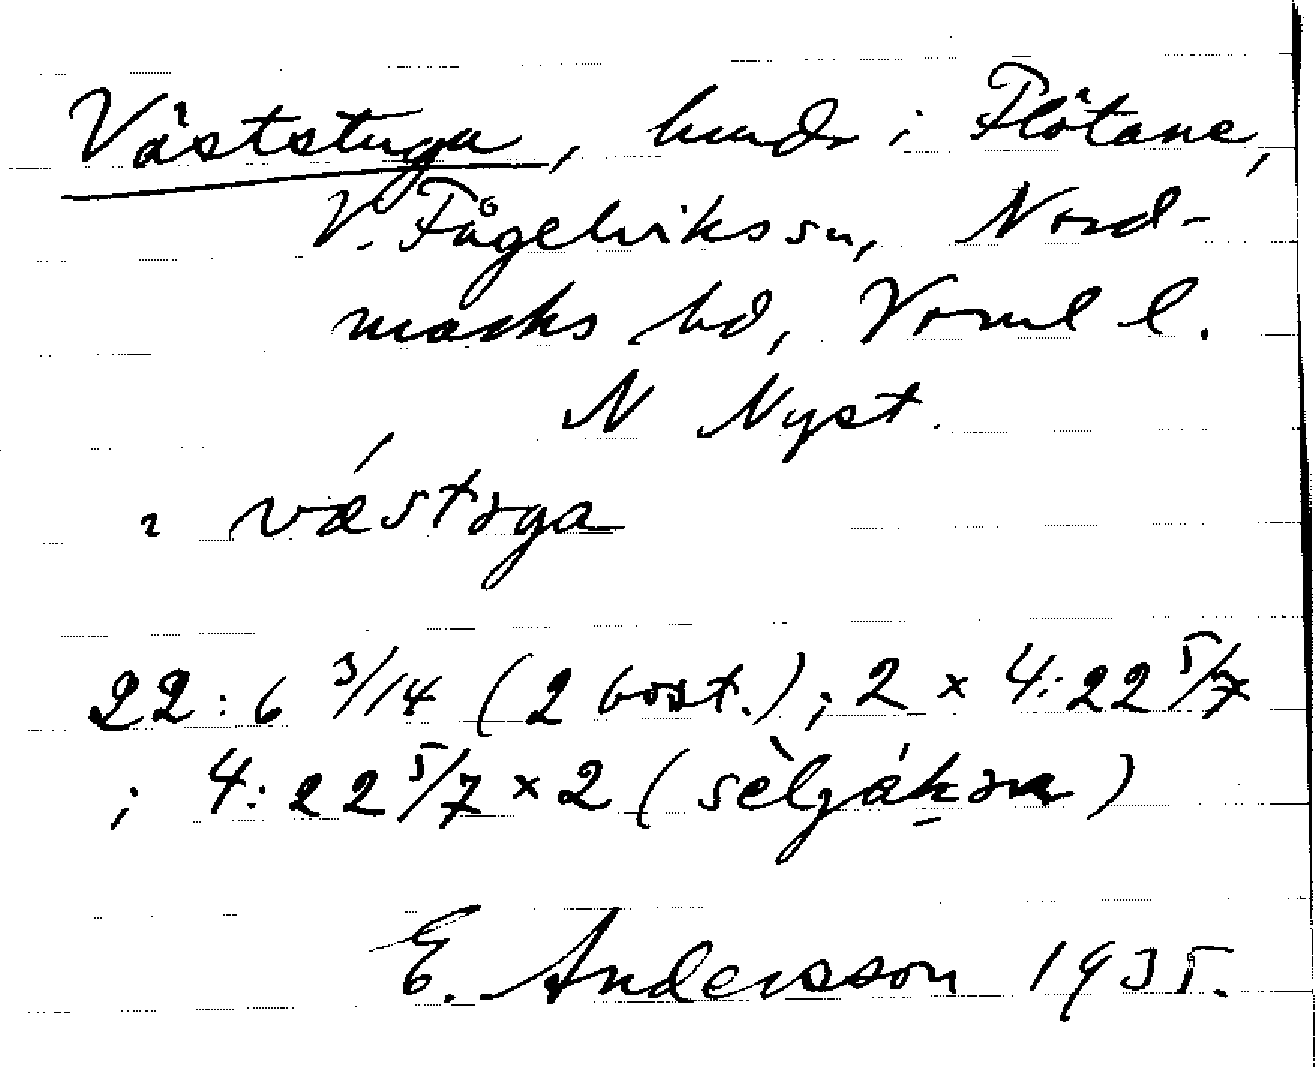 Väststuga, hmd i Flötane,
V. Fågelviks sn, Nord-
marks hd, Verml l.
N Nyst.
2 væ´stɜga
22:6 3/14 (2 bost.); 2 x 4:22 5/7
; 4:22 5/7 x 2 (
E. Andersson 1935.